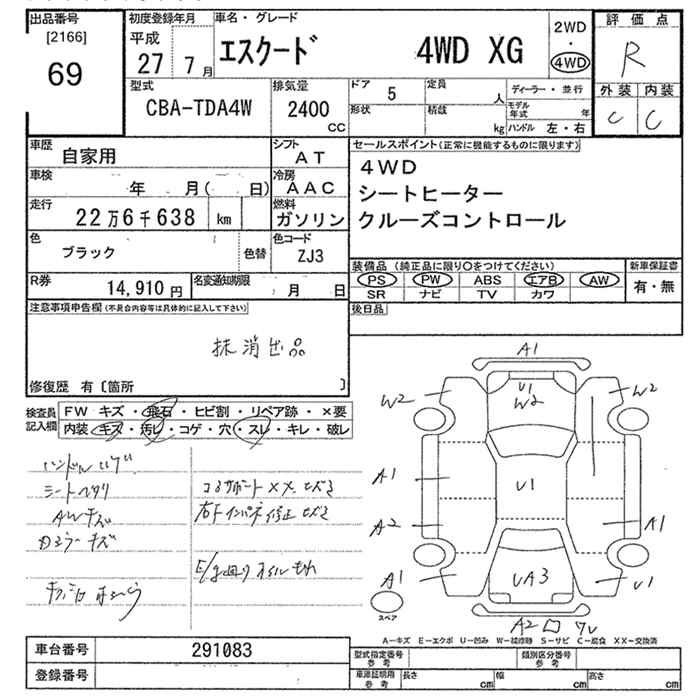 出品番号
[2166]
69
初度登録年月
平成
27 7月
車名・グレード
エスクード 4WD XG
2WD
・
4WD
評価点
R
外装 内装
C C
型式
CBA-TDA4W
排気量
2400
CC
ドア 5
定員
人
形状
積載
kg
ディーラー・並行
モデル
年式 年
ハンドル 左・右
車歴
自家用
シフト
AT
車検
年 月( 日)
冷房
AAC
走行
22万6千638 km
燃料
ガソリン
色
ブラック
色替
色コード
ZJ3
R券
14,910円
名変通知期限
月 日
セールスポイント(正常に機能するものに限ります)
4WD
シートヒーター
クルーズコントロール
装備品 (純正品に限り○をつけてください)
PS PW ABS エアB AW
SR ナビ TV カワ
新車保証書
有・無
後日品
注意事項申告欄(不具合内容等は具体的に記入して下さい)
抹消出品
修復歴 有〔箇所 〕
検査員
記入欄
FW キズ・飛石・ヒビ割・リペア跡・×要
内装 キズ・汚レ・コゲ・穴・スレ・キレ・破レ
AWキズ
A1
W2 U1 W2 W2
A1 U1
A2 A1
A1 UA3 U1
スペア
A2
A-キズ E-エクボ U-凹み W-補修跡 S-サビ C-腐食 XX-交換済
車台番号 291083
登録番号
型式指定番号
参考
類別区分番号
参考
車庫証明用
参考
長さ cm 幅 cm 高さ cm